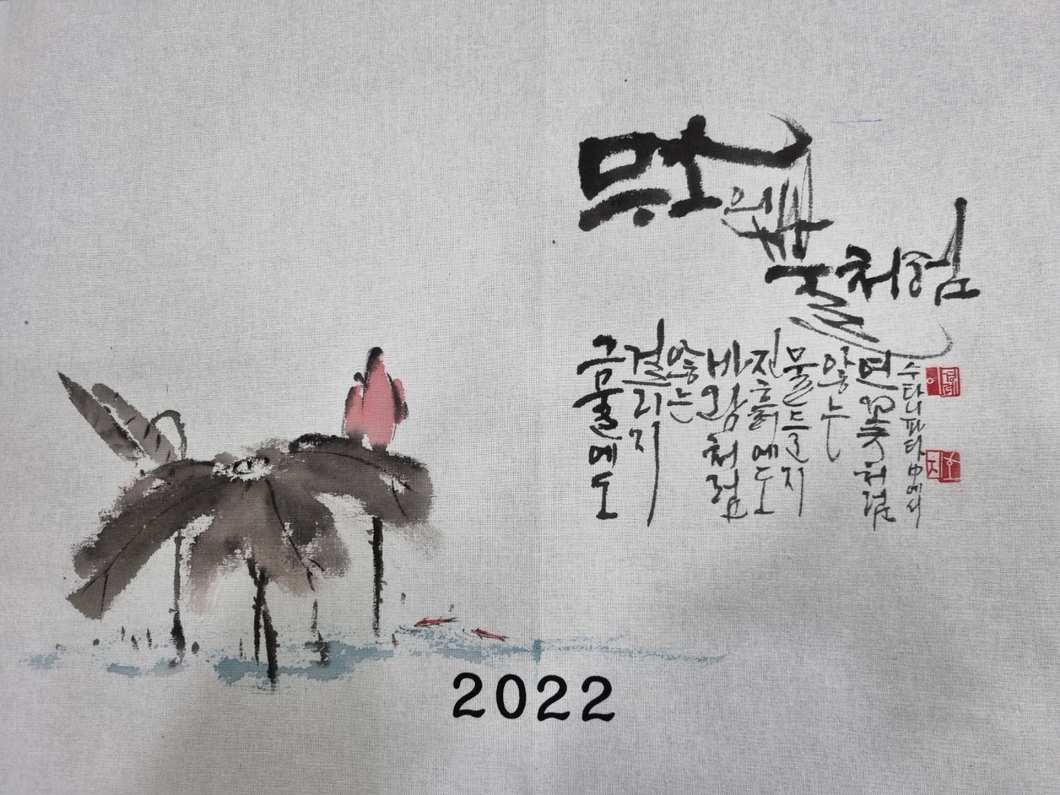 무소의 뿔처럼
그물에도
걸리지
않는
바람처럼
진흙에도
물들지
않는
연꽃처럼
수타니파타 中에서
2022